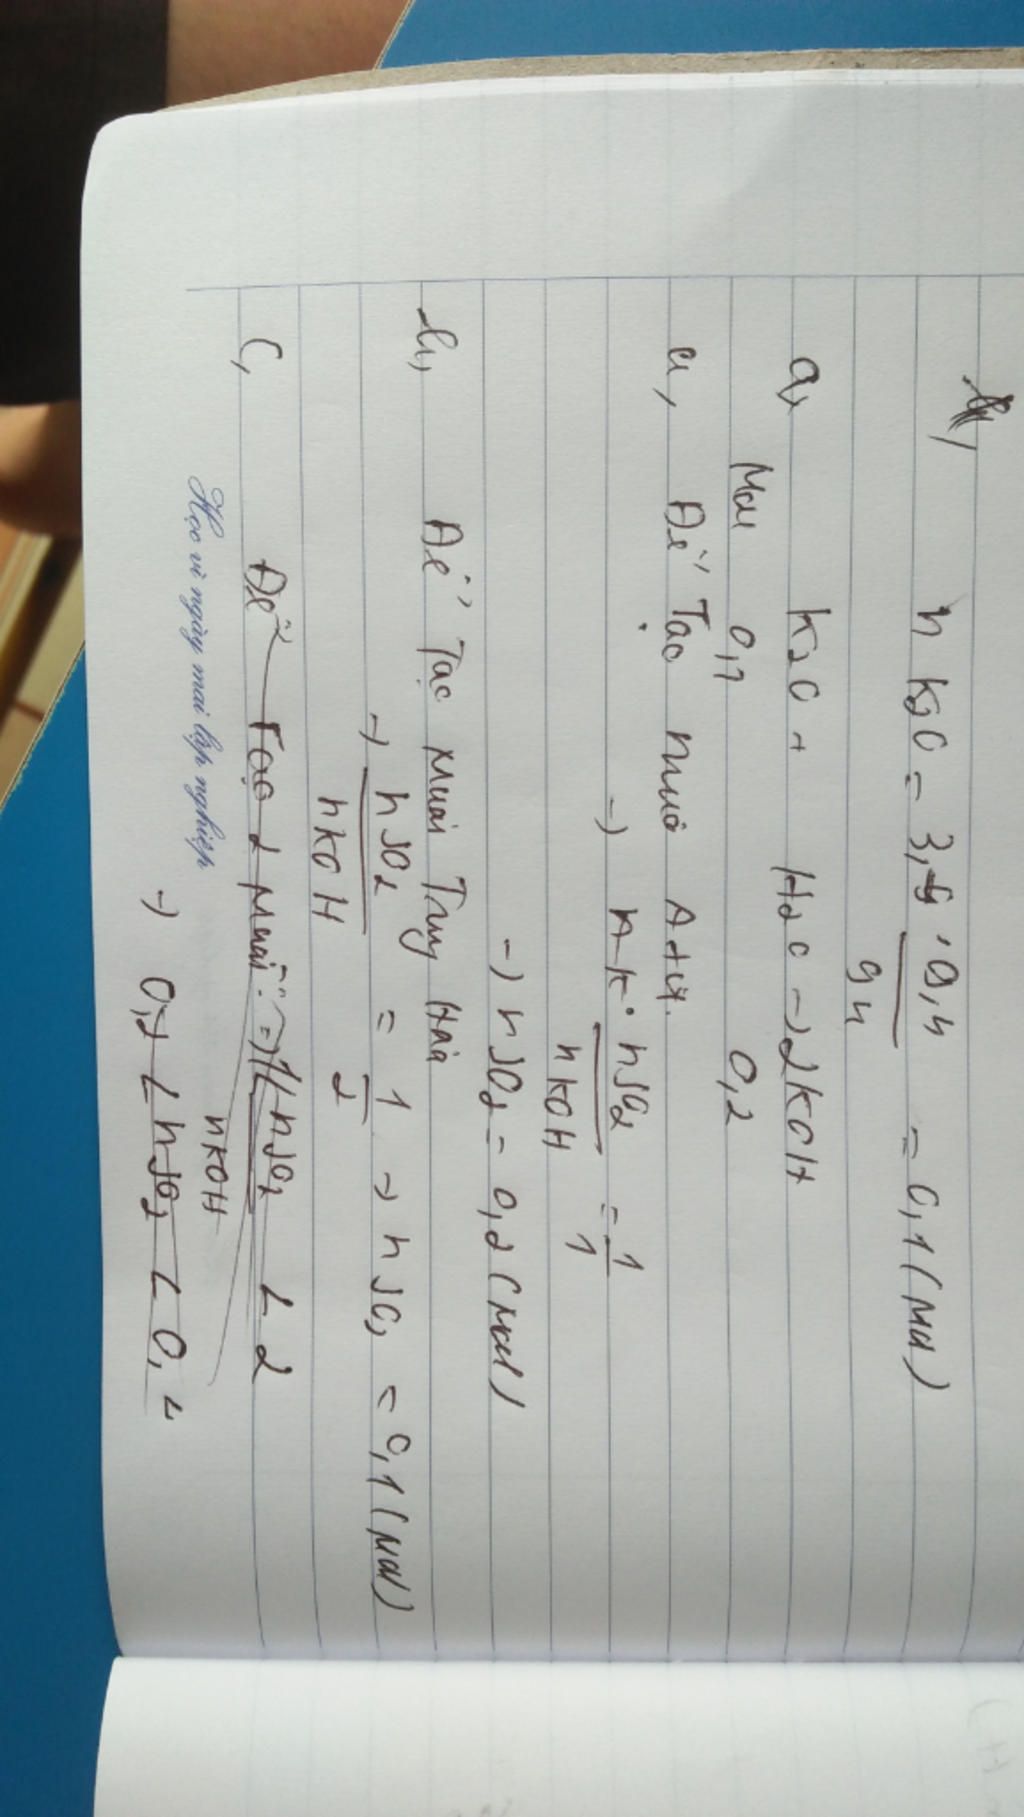 n K2O = 9,4 / 94 = 0,1 (mol)
a, K2O + H2O → 2KOH
Mol 0,1 0,2
a, Để Tạo muối Axit.
→ n SO2 / n KOH = 1 / 1
→ n SO2 = 0,2 (mol)
b, Để Tạo Muối Trung Hoà
→ n SO2 / n KOH = 1 / 2 → n SO2 = 0,1 (mol)
C, Để Tạo 2 Muối: → 1 < n SO2 / n KOH < 2
Học vì ngày mai lập nghiệp
→ 0,2 < n SO2 < 0,4